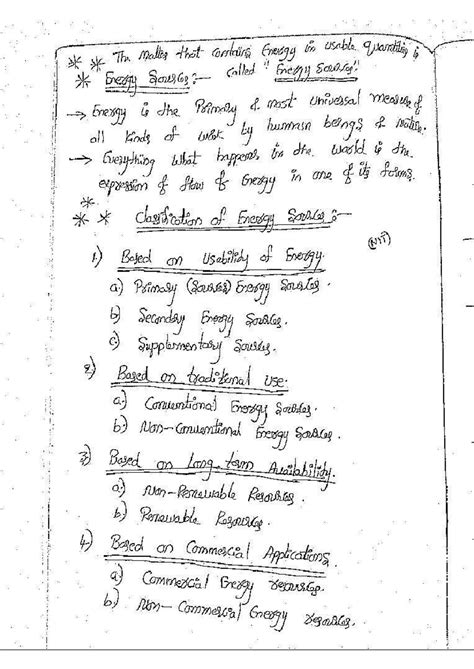 ** The matter that contains Energy in usable quantities is
* Energy Sources:- called "Energy Sources".
→ Energy is the Primary & most universal measure of
all kinds of work by human beings & nature.
→ Everything what happens in the world is the
expression of flow of Energy in one of its forms.
*
** Classification of Energy Sources:-
1.) Based on Usability of Energy.
a.) Primary (Sources) Energy Sources.
b) Secondary Energy Sources.
c) Supplementary Sources.
2) Based on traditional Use.
a.) Conventional Energy Sources.
b.) Non-Conventional Energy Sources.
3) Based on Long-term Availability.
a) Non-Renewable Resources.
b.) Renewable Resources.
4.) Based on Commercial Applications.
a) Commercial Energy resources.
b) Non-Commercial Energy resources.